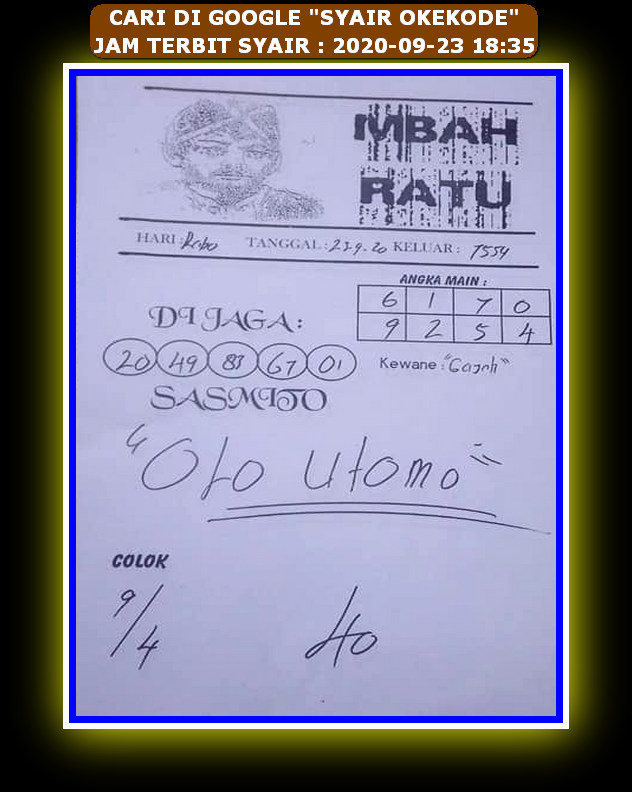 CARI DI GOOGLE "SYAIR OKEKODE"
JAM TERBIT SYAIR : 2020-09-23 18:35
MBAH
RATU
HARI : Rabo TANGGAL : 23.9.20 KELUAR : 7554
ANGKA MAIN :
6 1 7 0
9 2 5 4
DI JAGA :
20 49 83 67 01
Kewane : "Gajah"
SASMITO
"Oto Utomo"
COLOK
9/4
40